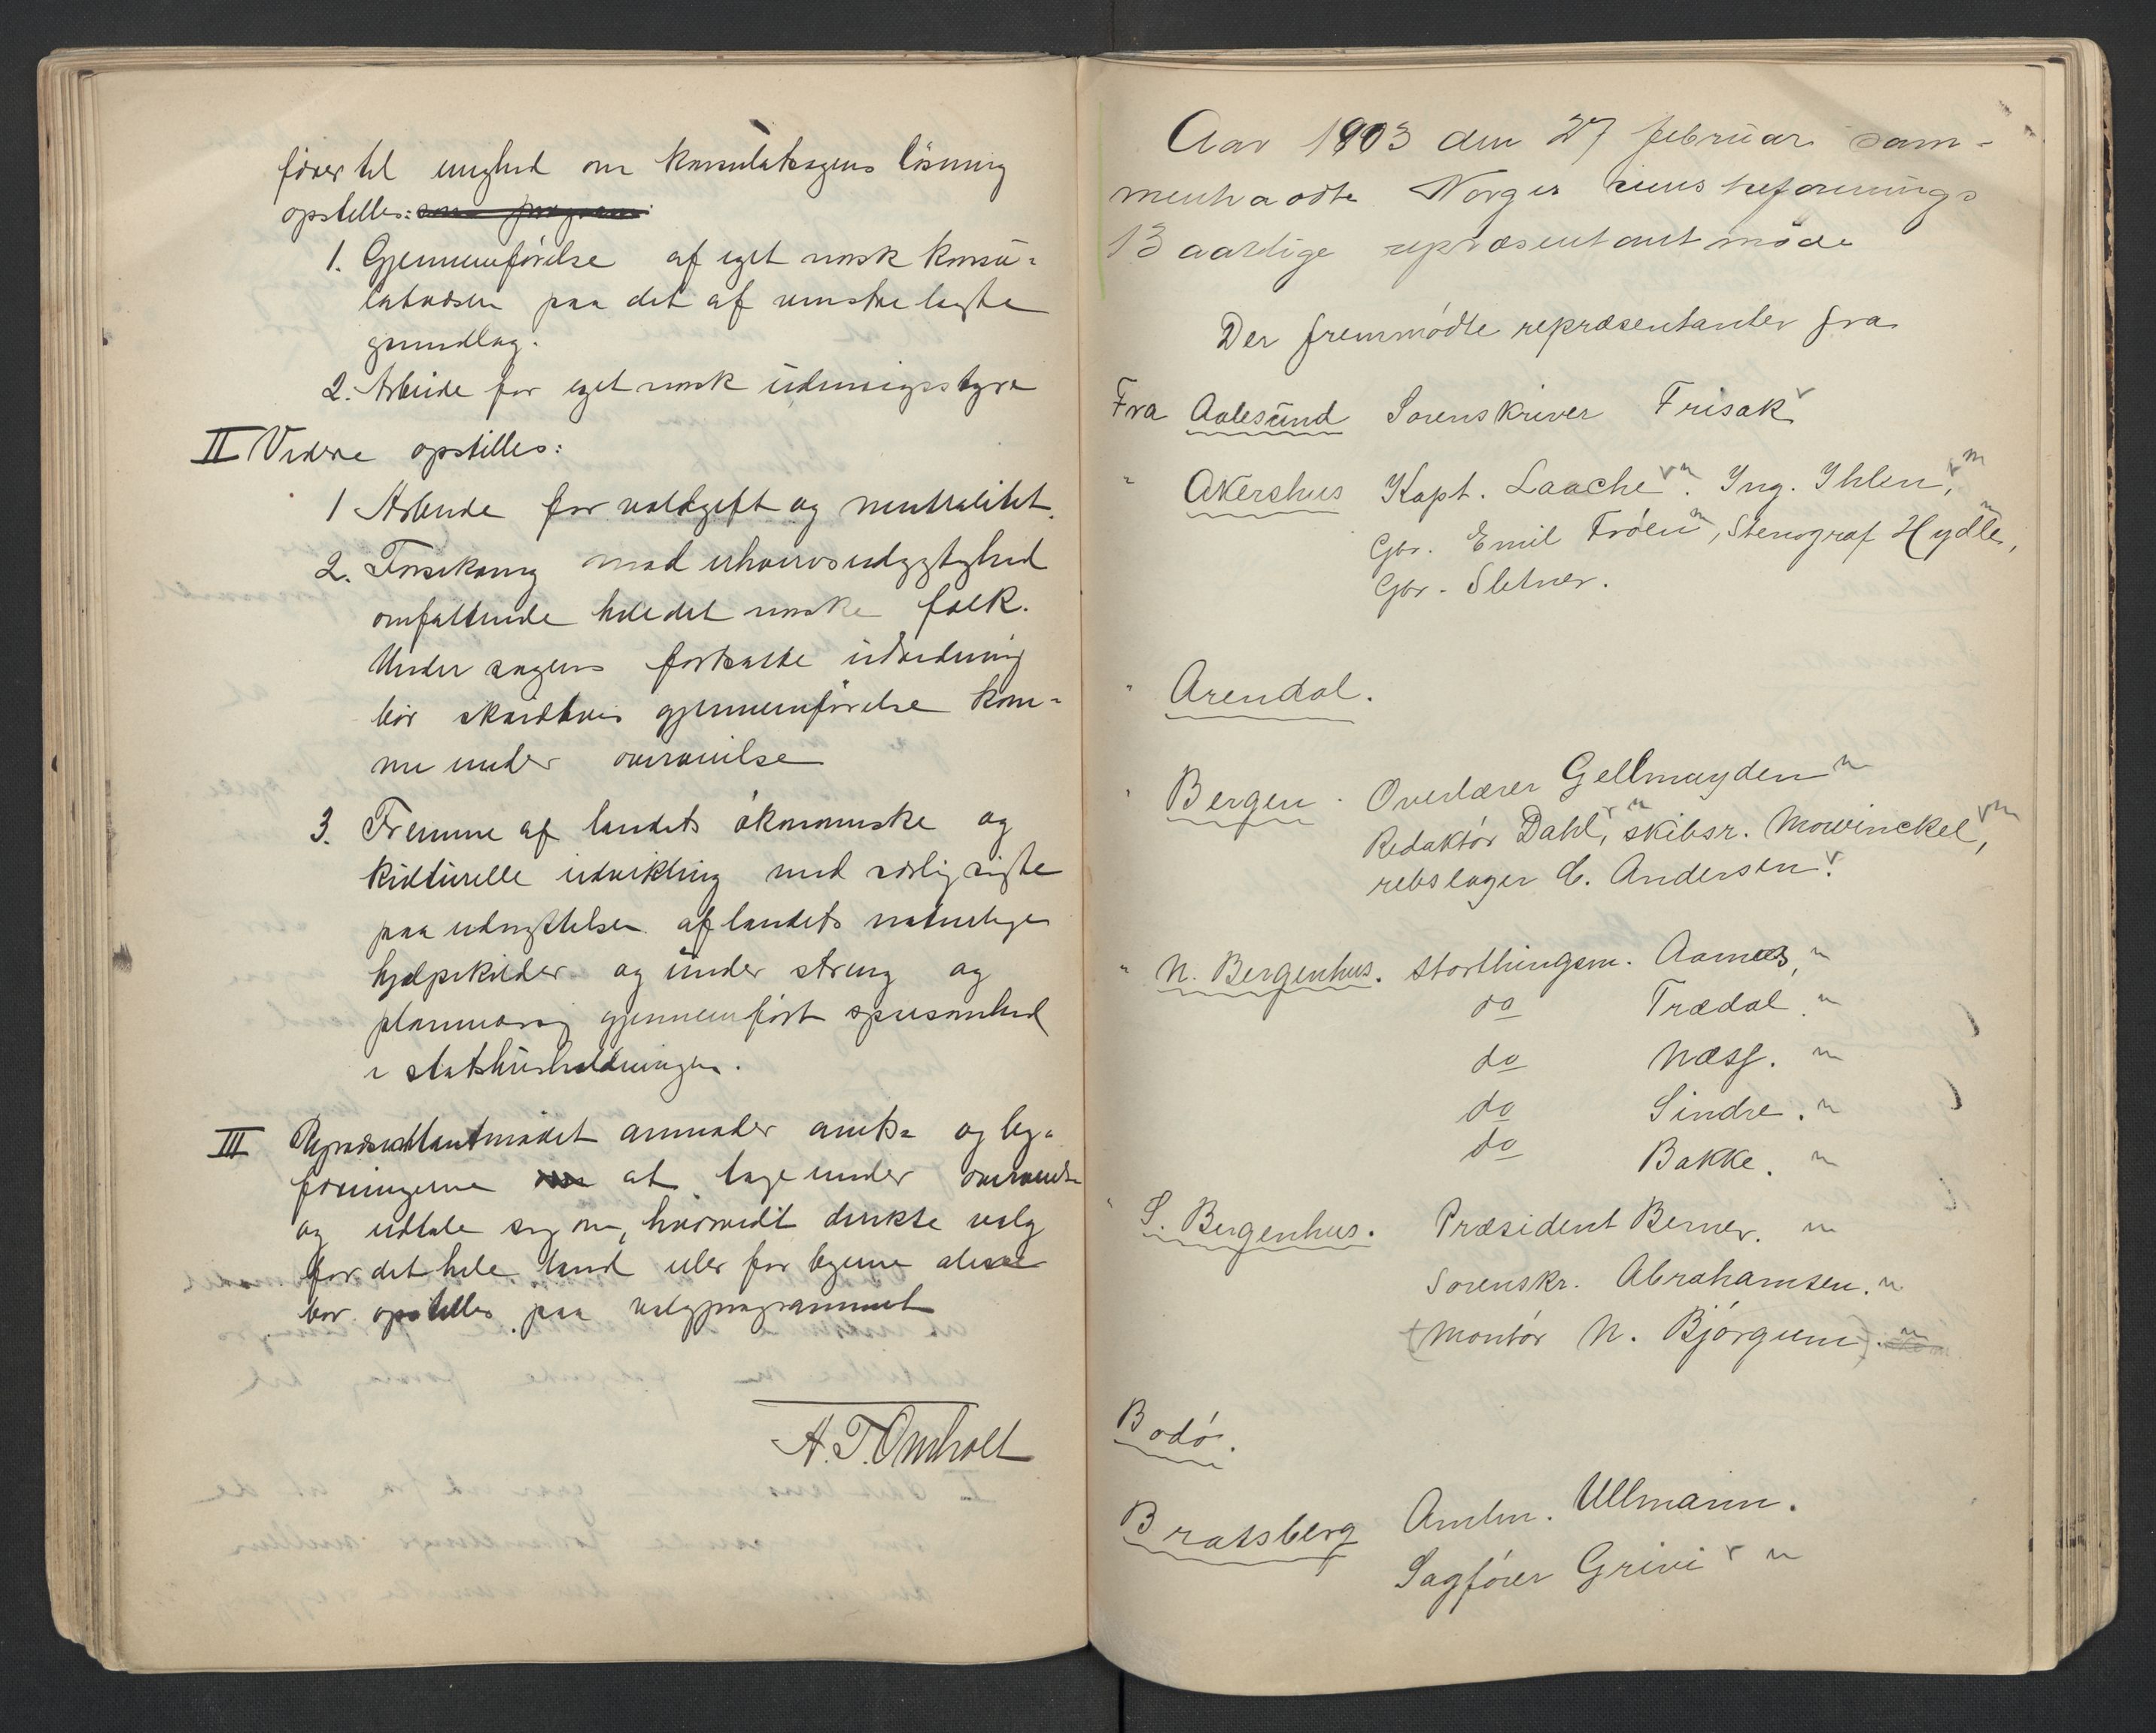 fører til enighed om konsulatsagens løsning
opstilles: som program
1. Gjennemførelse af eget norsk konsu-
latvæsen paa det af venstre lagte
grundlag.
2. Arbeide for eget norsk udenrigsstyre
II Videre opstilles:
1 Arbeide for voldgift og neutralitet.
2. Forsikring mod erhvervsudygtighed
omfattende hele det norske folk.
Under sagens fortsatte udredning
bör skridtvis gjennemførelse kom-
me under overveielse
3. Fremme af landets økonomiske og
kulturelle udvikling med særlig sigte
paa udnyttelsen af landets naturlige
hjælpekilder og under streng og
planmæssig gjennemført sparsomhed
i statshusholdningen.
III Repræsentantmødet anmoder amts- og by-
foreningerne at tage under overveielse
og udtale sig om, hvorvidt direkte valg
for det hele land eller for byerne alene
bør opstilles paa valgprogrammet
A. T. Omholt
Aar 1903 den 27 februar sam-
mentraadte Norges venstreforenings
13 aarlige repræsentantmöde
Der fremmödte repræsentanter fra
Fra Aalesund Sorenskriver Frisak
" Akershus Kapt. Laache. Ing. Ihlen,
Gbr. Emil Fröen, Stenograf Hydle,
Gbr. Sletner.
" Arendal.
" Bergen. Overlærer Gellmuyden
Redaktör Dahl, skibsr. Mowinckel,
rebslager C. Andersen.
" N. Bergenhus. Storthingsm. Aarnæs,
do Trædal.
do Næss.
do Sindre.
do Bakke.
" S. Bergenhus. Præsident Berner.
Sorenskr. Abrahamsen.
(Montör N. Björgum).
Bodö.
Bratsberg Amtm. Ullmann.
Sagförer Grivi